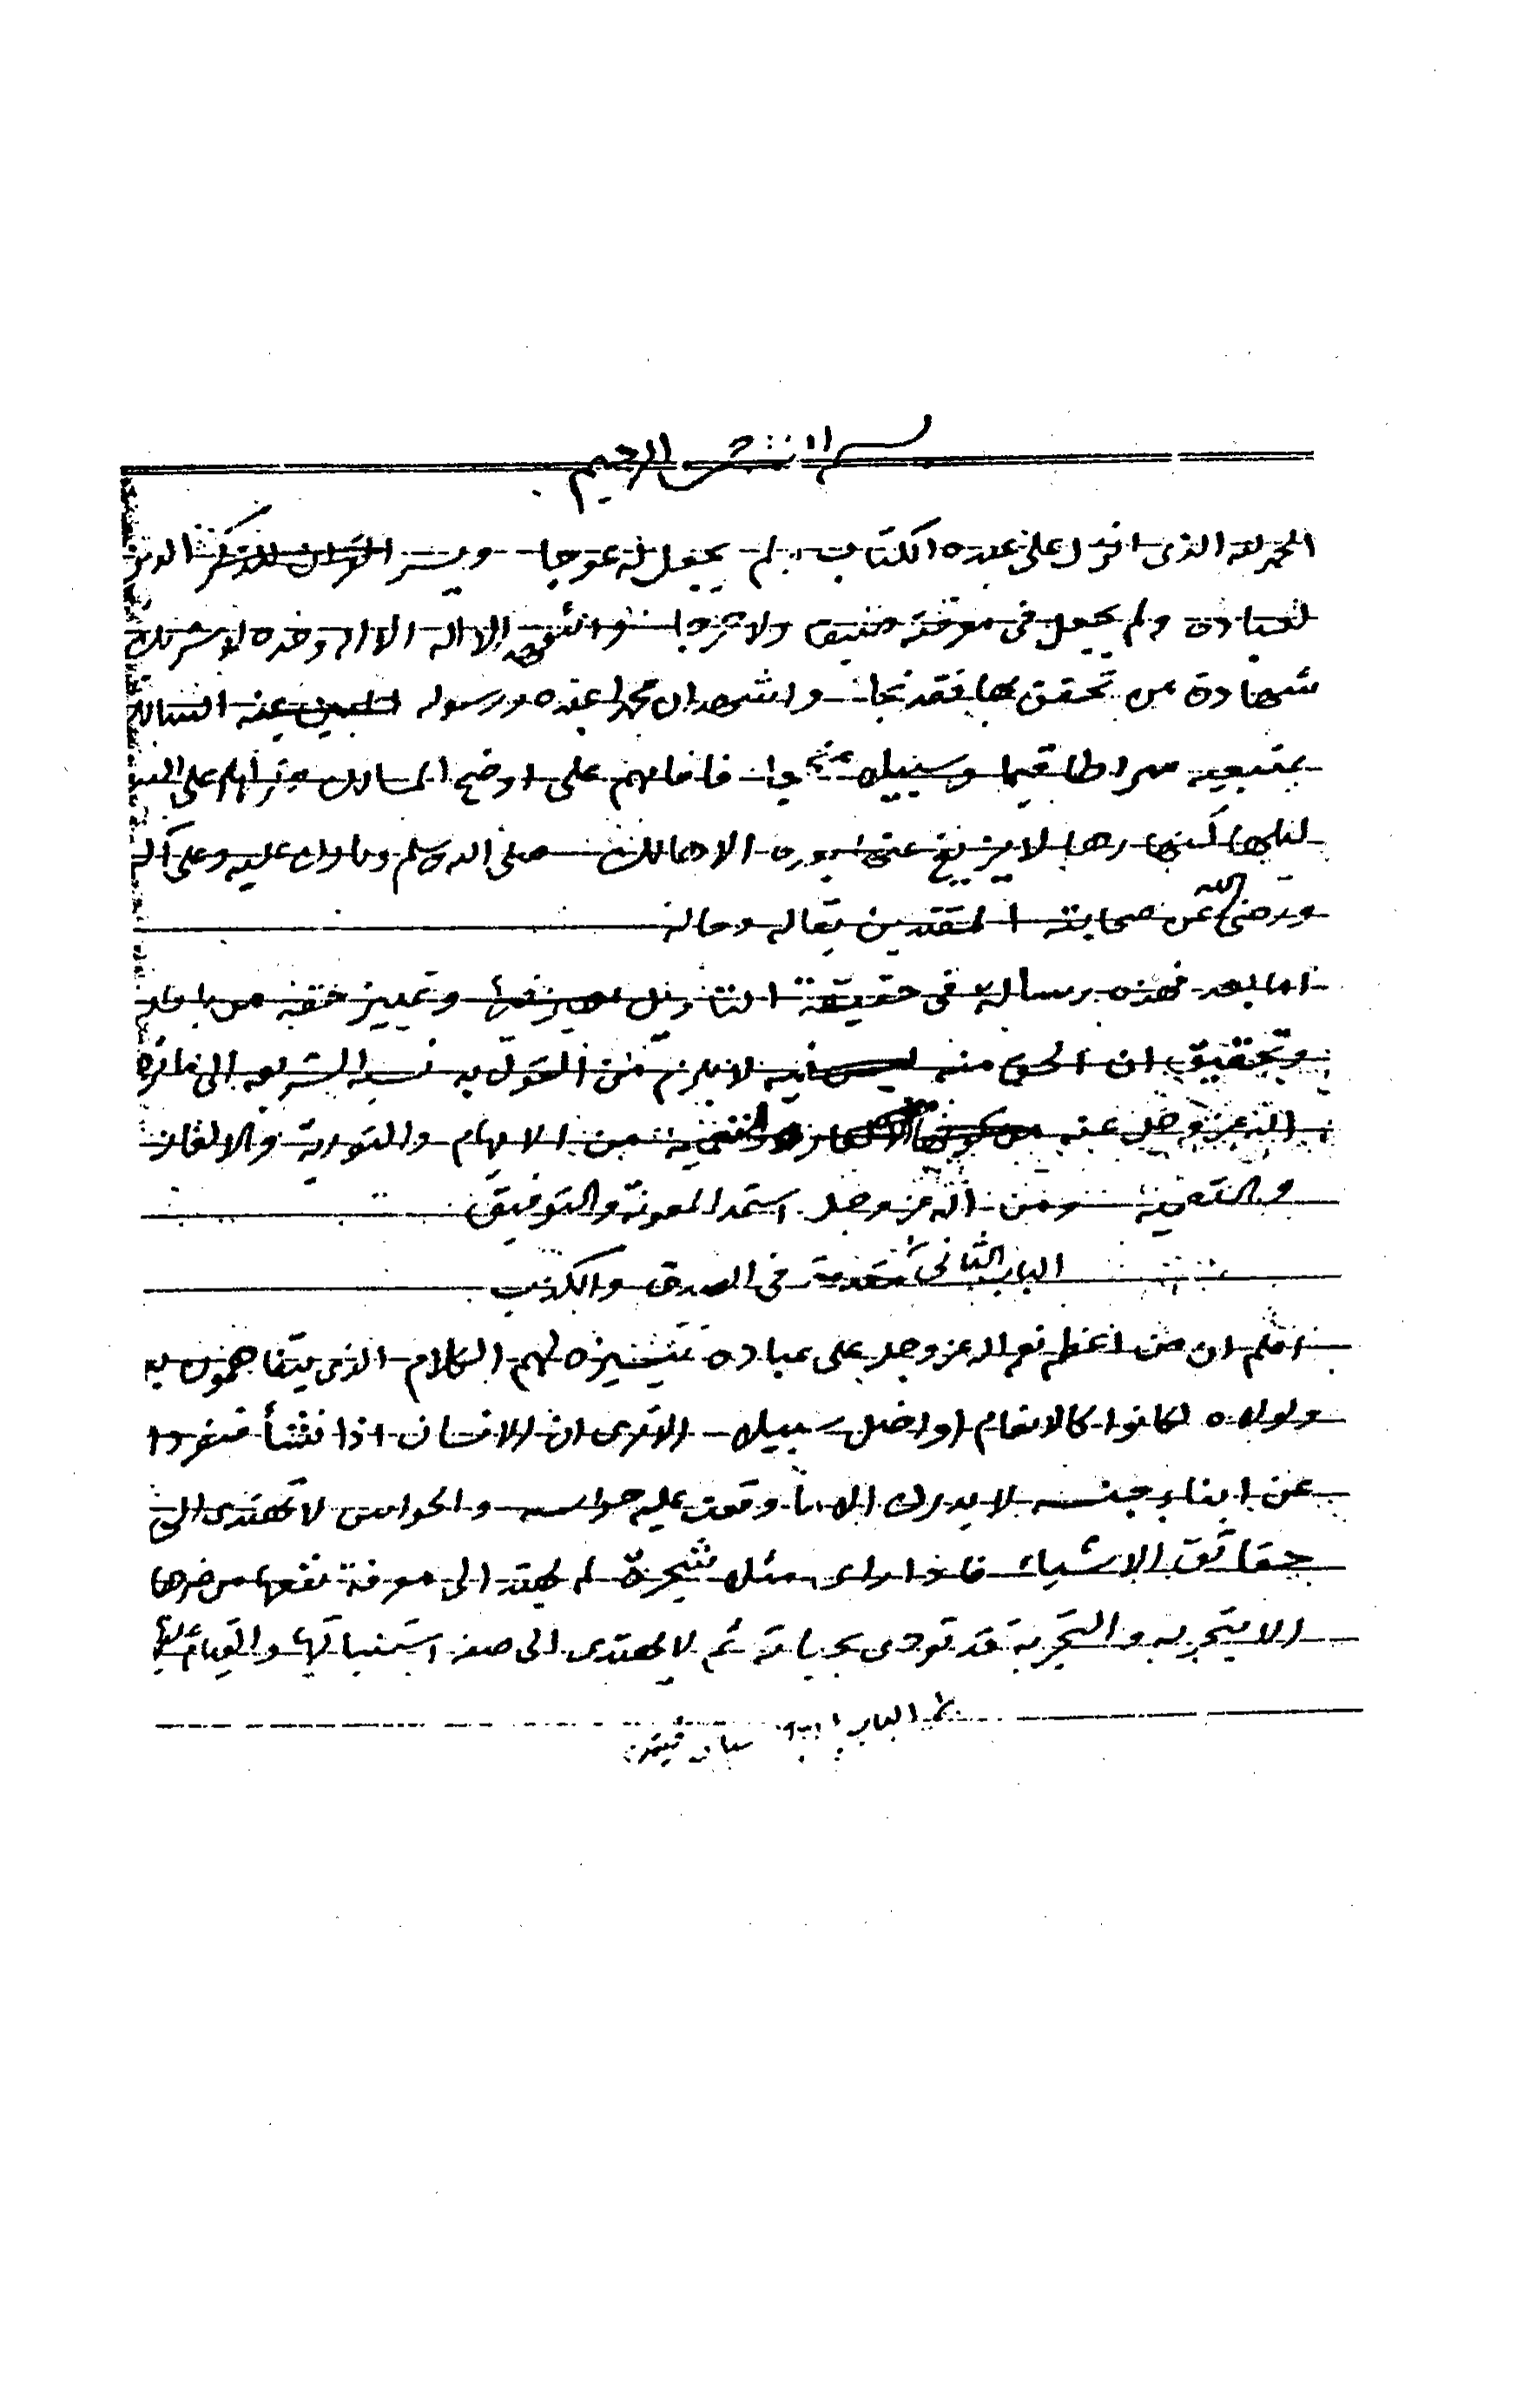 بسم الله الرحمن الرحيم
الحمد لله الذى انزل على عبده الكتاب ولم يجعل له عوجا ويسر القران للذكر
لعباده ولم يجعل فى معرفته ضيقا ولا حرجا واشهد الا اله الا الله وحده لا شريك له
شهادة من تحقق بها فقد نجا واشهد ان محمدا عبده ورسوله السالك
بمتبعيه صراطا قيما وسبيلا منهجا فاقامهم على اوضح المسالك
ليلها كنهارها لا يزيغ عنها الا هالك صلى الله وسلم وبارك عليه وعلى آله
ورضى الله عن صحابته المقتدين بقاله وحاله
اما بعد فهذه رسالة فى حقيقة التأويل وتمييز حقه من باطله
وتحقيق ان الحق منه لا يلزم من القول به نسبة الشريعه الى ما نزه
الله عز وجل عنه من الايهام والتورية والالغاز
والتعمية ومن الله عز وجل استمد المعونة والتوفيق
الباب الثانى مقدمة فى الصدق والكذب
اعلم ان من اعظم نعم الله عز وجل على عباده تيسيره لهم الكلام الذى يتفاهمون به
ولولاه لكانوا كالانعام او اضل سبيلا الا ترى ان الانسان اذا نشأ منفردا
عن ابناء جنسه لا يدرك الا ما وقعت عليه حواسه والحواس لا تهتدى الى
حقائق الاشياء فاذا راى مثلا شجرة لم يهتد الى معرفة نفعها من ضرها
الا بتجربه والتجربة قد تودى بحياته ثم لا يهتدى الى صفة استنباتها والقيام عليها